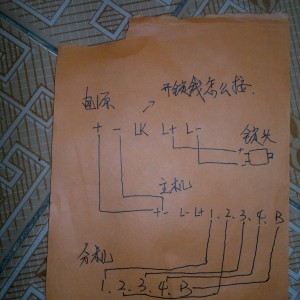 开锁我怎么按.
电源
+ - LK L+ L-
锁头
+
-
主机
+ - L- L+ 1. 2. 3. 4. B
分机
1. 2. 3. 4. B